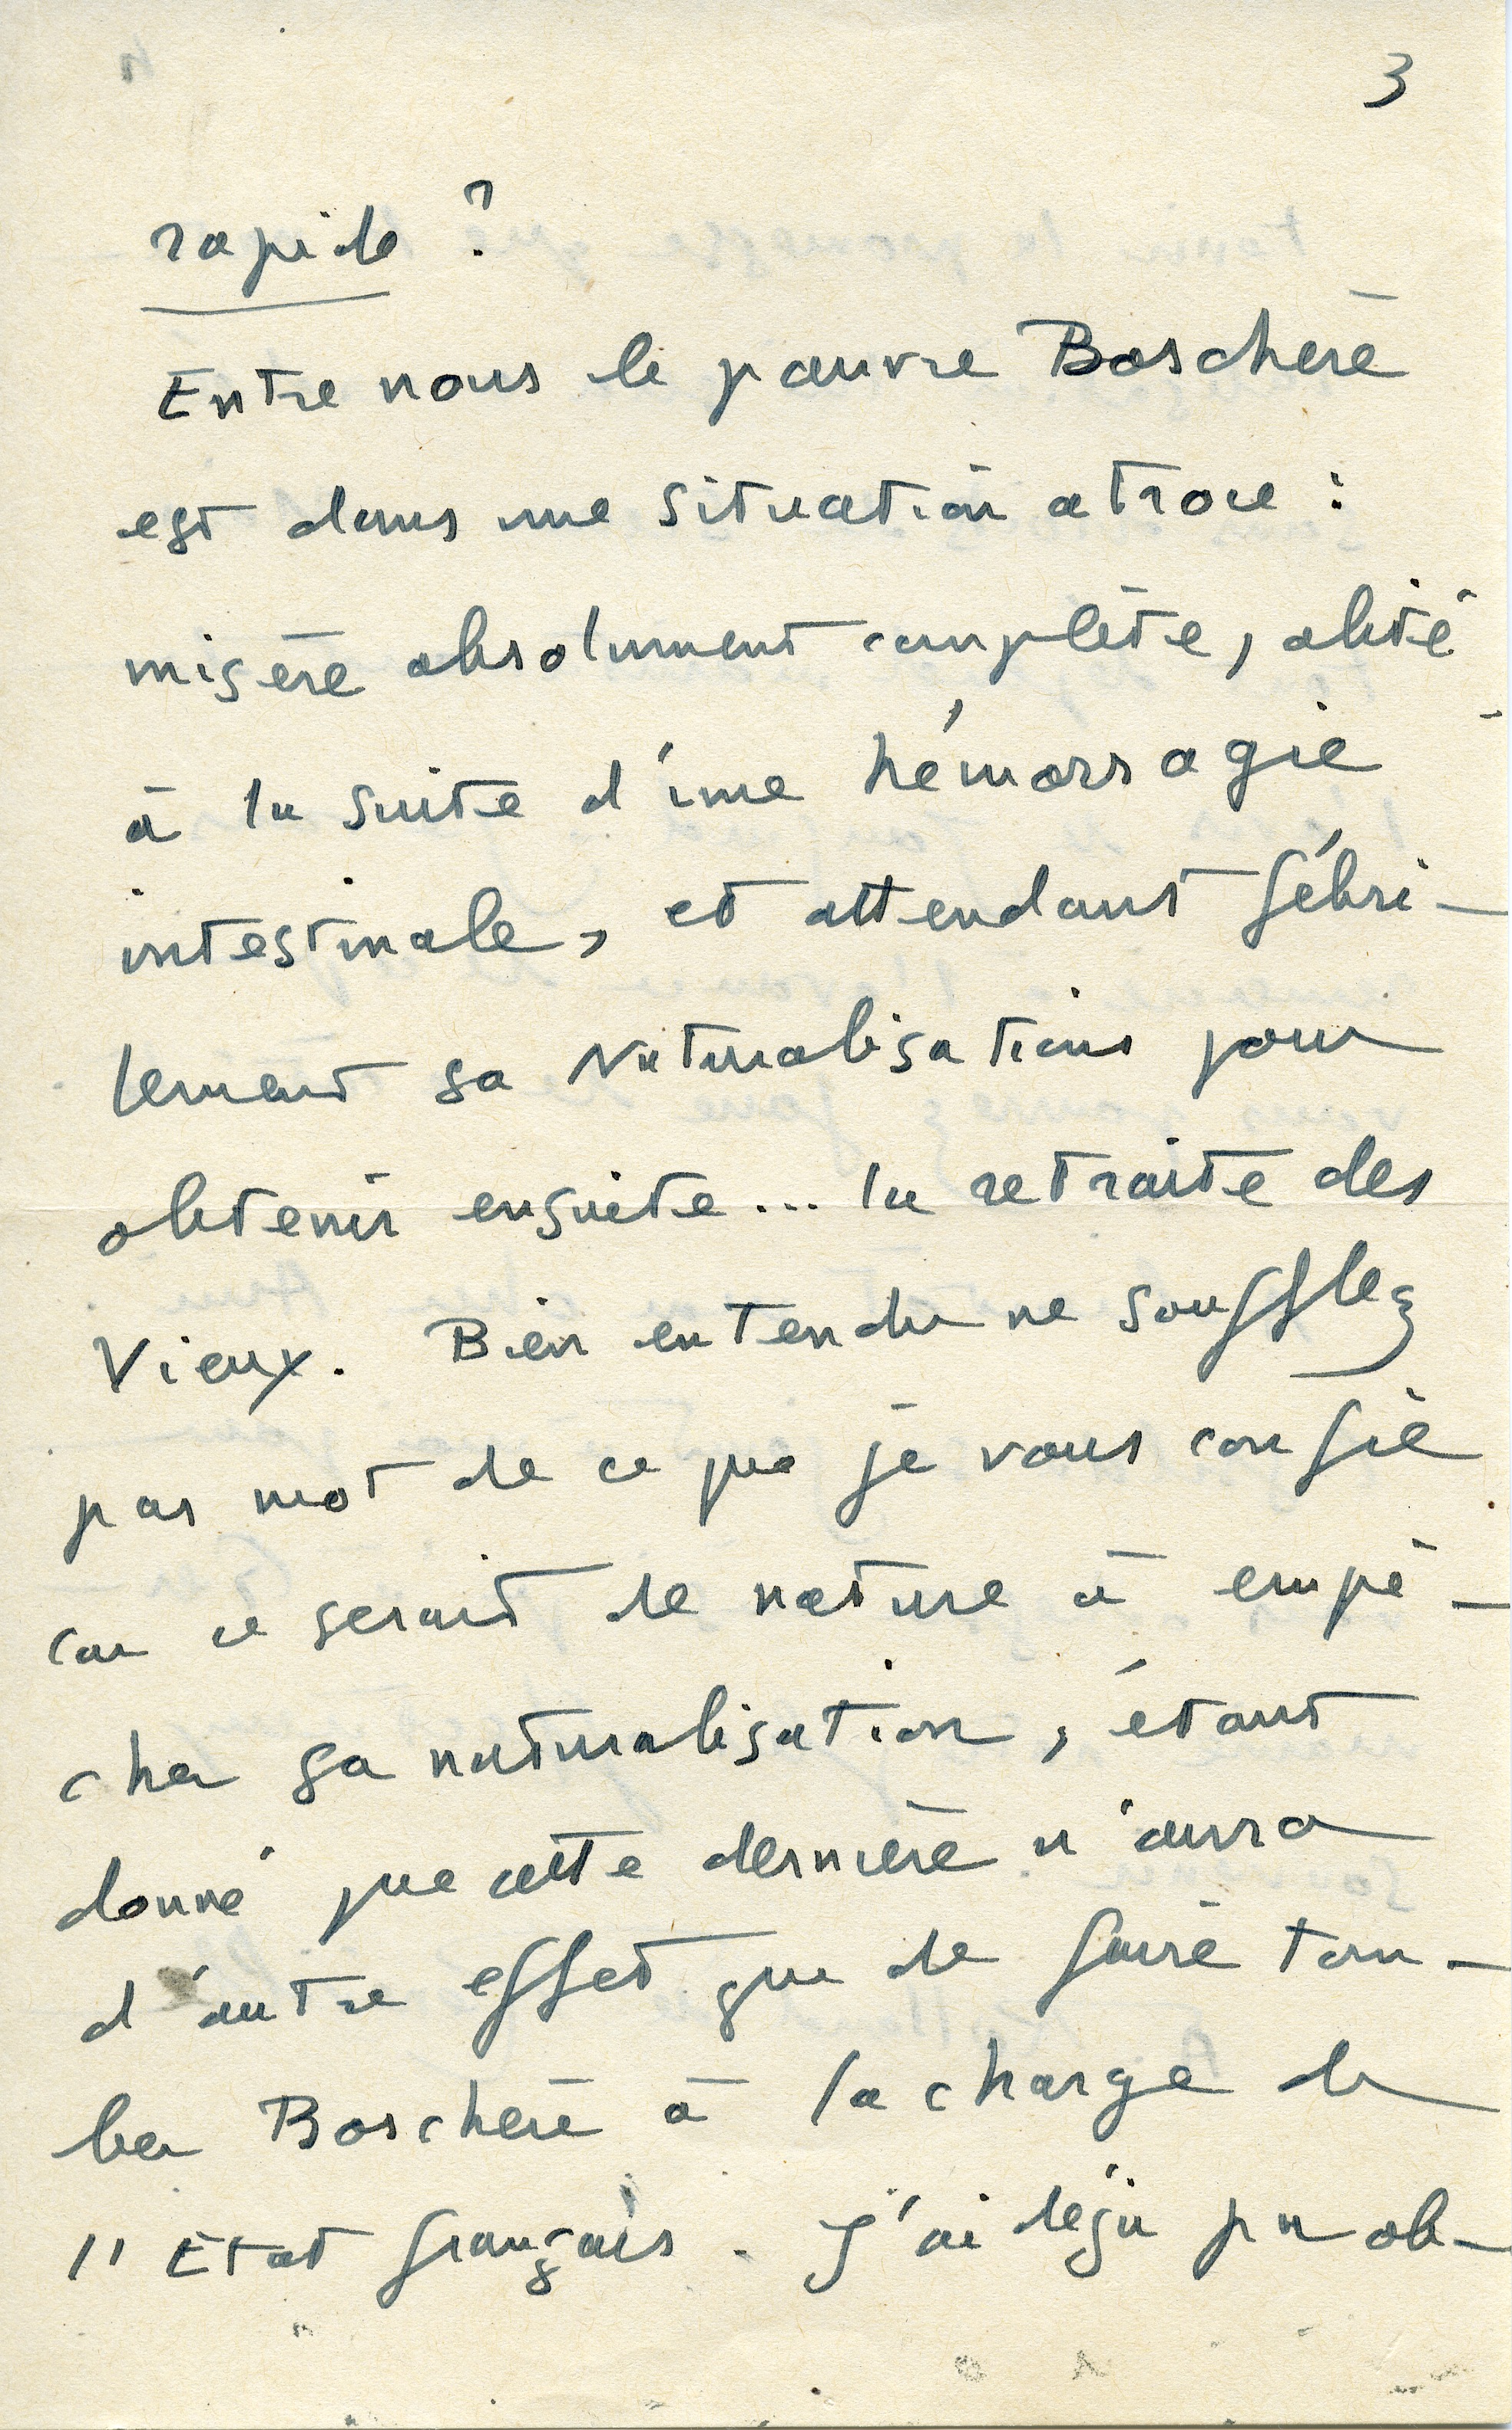 3
rapide ?
Entre nous le pauvre Boschère
est dans une situation atroce :
misère absolument complète, alité
à la suite d'une hémorragie
intestinale, et attendant fébri-
lement sa Naturalisation pour
obtenir ensuite... la retraite des
Vieux. Bien entendu ne soufflez
pas mot de ce que je vous confie
car ce serait de nature à empê-
cher sa naturalisation, étant
donné que cette dernière n'aura
d'autre effet que de faire tom-
ber Boschère à la charge de
l'Etat français. J'ai déjà pu ob-